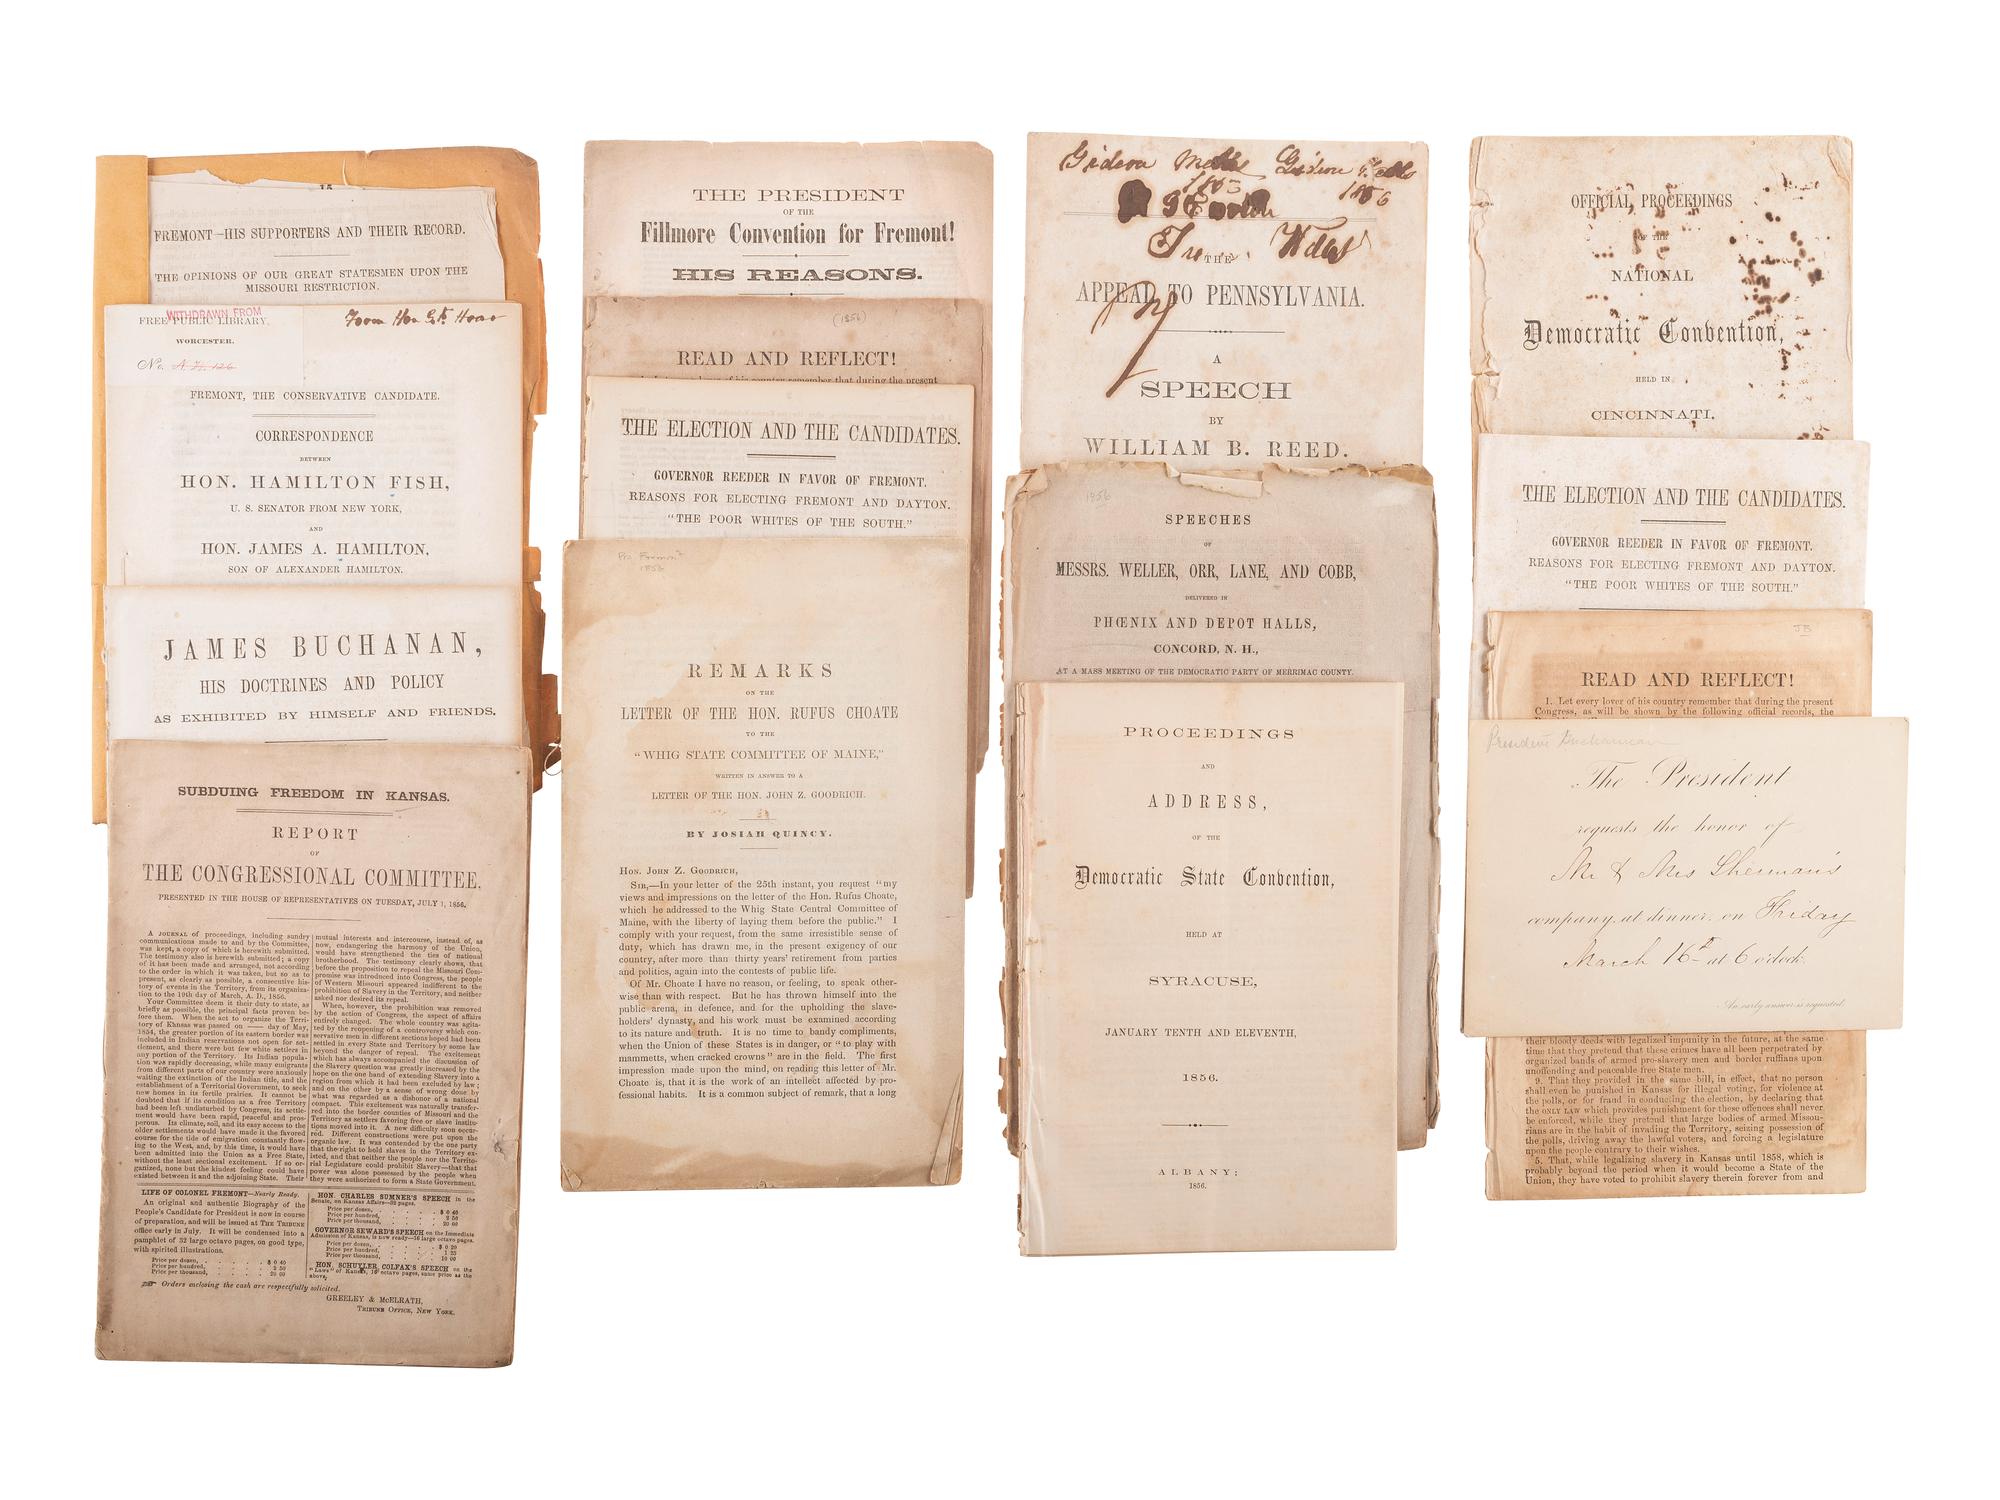 15
FREMONT—HIS SUPPORTERS AND THEIR RECORD.
THE OPINIONS OF OUR GREAT STATESMEN UPON THE
MISSOURI RESTRICTION.
WITHDRAWN FROM
FREE PUBLIC LIBRARY,
WORCESTER.
No. A. H. 126
From Hon G. F. Hoar
FREMONT, THE CONSERVATIVE CANDIDATE.
CORRESPONDENCE
BETWEEN
HON. HAMILTON FISH,
U. S. SENATOR FROM NEW YORK,
AND
HON. JAMES A. HAMILTON,
SON OF ALEXANDER HAMILTON.
JAMES BUCHANAN,
HIS DOCTRINES AND POLICY
AS EXHIBITED BY HIMSELF AND FRIENDS.
SUBDUING FREEDOM IN KANSAS.
REPORT
OF
THE CONGRESSIONAL COMMITTEE,
PRESENTED IN THE HOUSE OF REPRESENTATIVES ON TUESDAY, JULY 1, 1856.
A JOURNAL of proceedings, including sundry
communications made to and by the Committee,
was kept, a copy of which is herewith submitted.
The testimony also is herewith submitted; a copy
of it has been made and arranged, not according
to the order in which it was taken, but so as to
present, as clearly as possible, a consecutive his-
tory of events in the Territory, from its organiza-
tion to the 19th day of March, A. D., 1856.
Your Committee deem it their duty to state, as
briefly as possible, the principal facts proven be-
fore them. When the act to organize the Terri-
tory of Kansas was passed on —— day of May,
1854, the greater portion of its eastern border was
included in Indian reservations not open for set-
tlement, and there were but few white settlers in
any portion of the Territory. Its Indian popula-
tion was rapidly decreasing, while many emigrants
from different parts of our country were anxiously
waiting the extinction of the Indian title, and the
establishment of a Territorial Government, to seek
new homes in its fertile prairies. It cannot be
doubted that if its condition as a free Territory
had been left undisturbed by Congress, its settle-
ment would have been rapid, peaceful and pros-
perous. Its climate, soil, and its easy access to the
older settlements would have made it the favored
course for the tide of emigration constantly flow-
ing to the West, and, by this time, it would have
been admitted into the Union as a Free State,
without the least sectional excitement. If so or-
ganized, none but the kindest feeling could have
existed between it and the adjoining State. Their
mutual interests and intercourse, instead of, as
now, endangering the harmony of the Union,
would have strengthened the ties of national
brotherhood. The testimony clearly shows, that
before the proposition to repeal the Missouri Com-
promise was introduced into Congress, the people
of Western Missouri appeared indifferent to the
prohibition of Slavery in the Territory, and neither
asked nor desired its repeal.
When, however, the prohibition was removed
by the action of Congress, the aspect of affairs
entirely changed. The whole country was agita-
ted by the reopening of a controversy which con-
servative men in different sections hoped had been
settled in every State and Territory by some law
beyond the danger of repeal. The excitement
which has always accompanied the discussion of
the Slavery question was greatly increased by the
hope on the one hand of extending Slavery into a
region from which it had been excluded by law;
and on the other by a sense of wrong done by
what was regarded as a dishonor of a national
compact. This excitement was naturally transfer-
red into the border counties of Missouri and the
Territory as settlers favoring free or slave institu-
tions moved into it. A new difficulty soon occur-
red. Different constructions were put upon the
organic law. It was contended by the one party
that the right to hold slaves in the Territory ex-
isted, and that neither the people nor the Territo-
rial Legislature could prohibit Slavery—that that
power was alone possessed by the people when
they were authorized to form a State Government.
LIFE OF COLONEL FREMONT—Nearly Ready.
An original and authentic Biography of the
People's Candidate for President is now in course
of preparation, and will be issued at THE TRIBUNE
office early in July. It will be condensed into a
pamphlet of 32 large octavo pages, on good type,
with spirited illustrations.
Price per dozen, . . . . . $ 0 40
Price per hundred, . . . . . 2 50
Price per thousand, . . . . . 20 00
HON. CHARLES SUMNER'S SPEECH in the
Senate, on Kansas Affairs—32 pages.
Price per dozen, . . . . . $ 0 40
Price per hundred, . . . . . 2 50
Price per thousand, . . . . . 20 00
GOVERNOR SEWARD'S SPEECH on the Immediate
Admission of Kansas, is now ready—16 large octavo pages.
Price per dozen, . . . . . $ 0 20
Price per hundred, . . . . . 1 25
Price per thousand, . . . . . 10 00
HON. SCHUYLER COLFAX'S SPEECH on the
"Laws" of Kansas, 16 octavo pages, same price as the
above.
Orders enclosing the cash are respectfully solicited.
GREELEY & McELRATH,
TRIBUNE OFFICE, NEW YORK.
THE PRESIDENT
OF THE
Fillmore Convention for Fremont!
HIS REASONS.
(1856)
READ AND REFLECT!
THE ELECTION AND THE CANDIDATES.
GOVERNOR REEDER IN FAVOR OF FREMONT.
REASONS FOR ELECTING FREMONT AND DAYTON.
"THE POOR WHITES OF THE SOUTH."
Pro Fremont
1856
REMARKS
ON THE
LETTER OF THE HON. RUFUS CHOATE
TO THE
"WHIG STATE COMMITTEE OF MAINE,"
WRITTEN IN ANSWER TO A
LETTER OF THE HON. JOHN Z. GOODRICH.
BY JOSIAH QUINCY.
HON. JOHN Z. GOODRICH,
SIR,—In your letter of the 25th instant, you request "my
views and impressions on the letter of the Hon. Rufus Choate,
which he addressed to the Whig State Central Committee of
Maine, with the liberty of laying them before the public." I
comply with your request, from the same irresistible sense of
duty, which has drawn me, in the present exigency of our
country, after more than thirty years' retirement from parties
and politics, again into the contests of public life.
Of Mr. Choate I have no reason, or feeling, to speak other-
wise than with respect. But he has thrown himself into the
public arena, in defence, and for the upholding the slave-
holders' dynasty, and his work must be examined according
to its nature and truth. It is no time to bandy compliments,
when the Union of these States is in danger, or "to play with
mammetts, when cracked crowns" are in the field. The first
impression made upon the mind, on reading this letter of Mr.
Choate is, that it is the work of an intellect affected by pro-
fessional habits. It is a common subject of remark, that a long
Gideon Welles Gideon Welles
1863 1856
THE
APPEAL TO PENNSYLVANIA.
A
SPEECH
BY
WILLIAM B. REED.
1856
SPEECHES
OF
MESSRS. WELLER, ORR, LANE, AND COBB,
DELIVERED IN
PHŒNIX AND DEPOT HALLS,
CONCORD, N. H.,
AT A MASS MEETING OF THE DEMOCRATIC PARTY OF MERRIMAC COUNTY.
PROCEEDINGS
AND
ADDRESS,
OF THE
Democratic State Convention,
HELD AT
SYRACUSE,
JANUARY TENTH AND ELEVENTH,
1856.
ALBANY:
1856.
OFFICIAL PROCEEDINGS
OF THE
NATIONAL
Democratic Convention,
HELD IN
CINCINNATI,
THE ELECTION AND THE CANDIDATES.
GOVERNOR REEDER IN FAVOR OF FREMONT.
REASONS FOR ELECTING FREMONT AND DAYTON.
"THE POOR WHITES OF THE SOUTH."
JB
READ AND REFLECT!
1. Let every lover of his country remember that during the present
Congress, as will be shown by the following official records, the
President Buchanan
The President
requests the honor of
Mr & Mrs Sherman's
company, at dinner, on Friday
March 16th at 6 o'clock.
An early answer is requested.
their bloody deeds with legalized impunity in the future, at the same
time that they pretend that these crimes have all been perpetrated by
organized bands of armed pro-slavery men and border ruffians upon
unoffending and peaceable free State men.
9. That they provided in the same bill, in effect, that no person
shall even be punished in Kansas for illegal voting, for violence at
the polls, or for fraud in conducting the election, by declaring that
the ONLY LAW which provides punishment for these offences shall never
be enforced, while they pretend that large bodies of armed Missou-
rians are in the habit of invading the Territory, seizing possession of
the polls, driving away the lawful voters, and forcing a legislature
upon the people contrary to their wishes.
5. That, while legalizing slavery in Kansas until 1858, which is
probably beyond the period when it would become a State of the
Union, they have voted to prohibit slavery therein forever from and